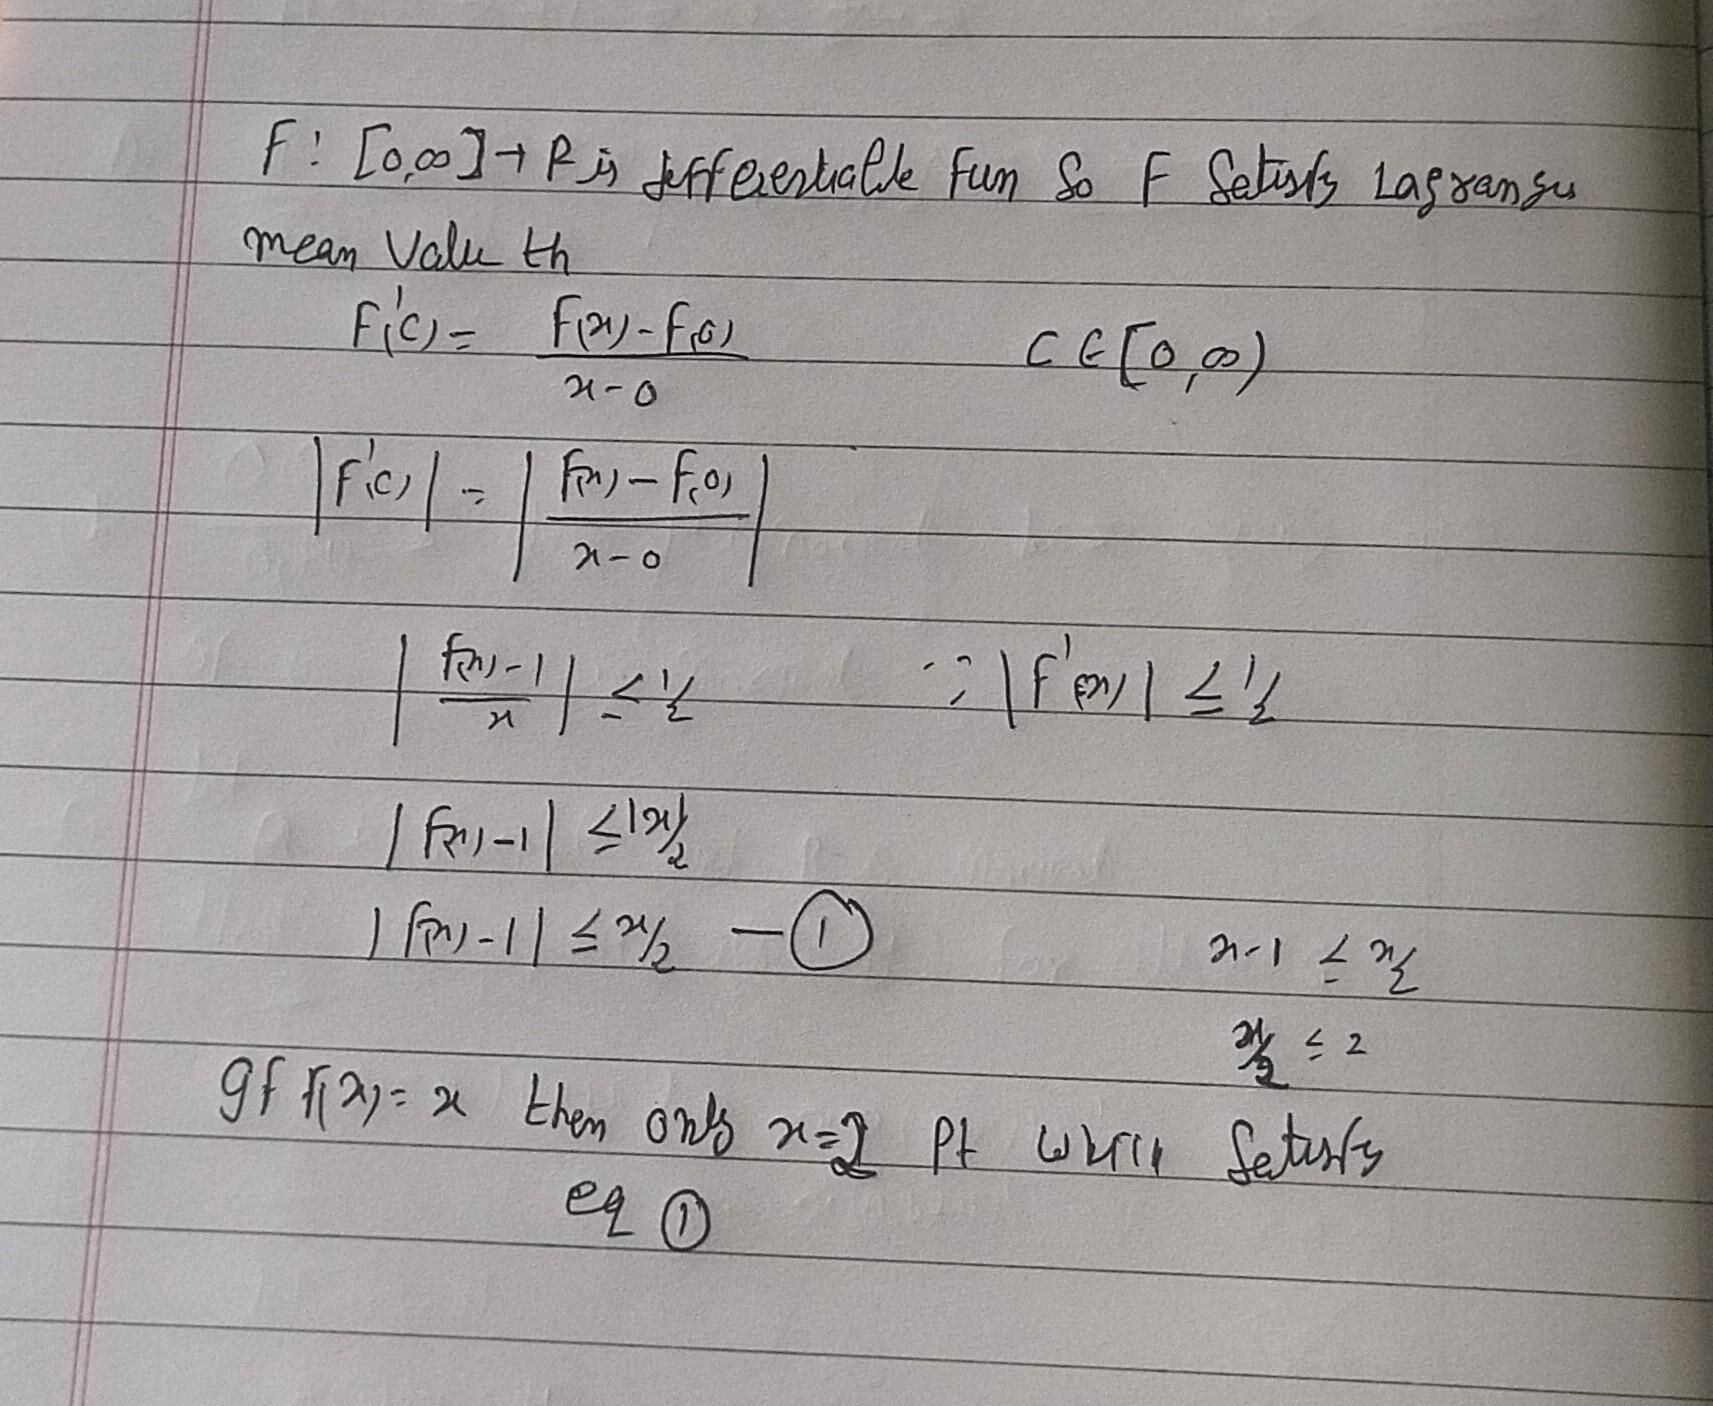 F: [0,∞] → R is differentiable fun So F Satisfy Lagranges
mean Value th
F'(c) = F(x) - F(0) / x-0 C ∈ [0,∞)
|F'(c)| = | F(x) - F(0) / x-0 |
| F(x)-1 / x | ≤ 1/2 ∵ |F'(x)| ≤ 1/2
| F(x)-1 | ≤ |x|/2
| F(x)-1 | ≤ x/2 — ①
x-1 ≤ x/2
x/2 ≤ 2
gf F(x) = x then only x=2 Pt which Satisfy
eq ①